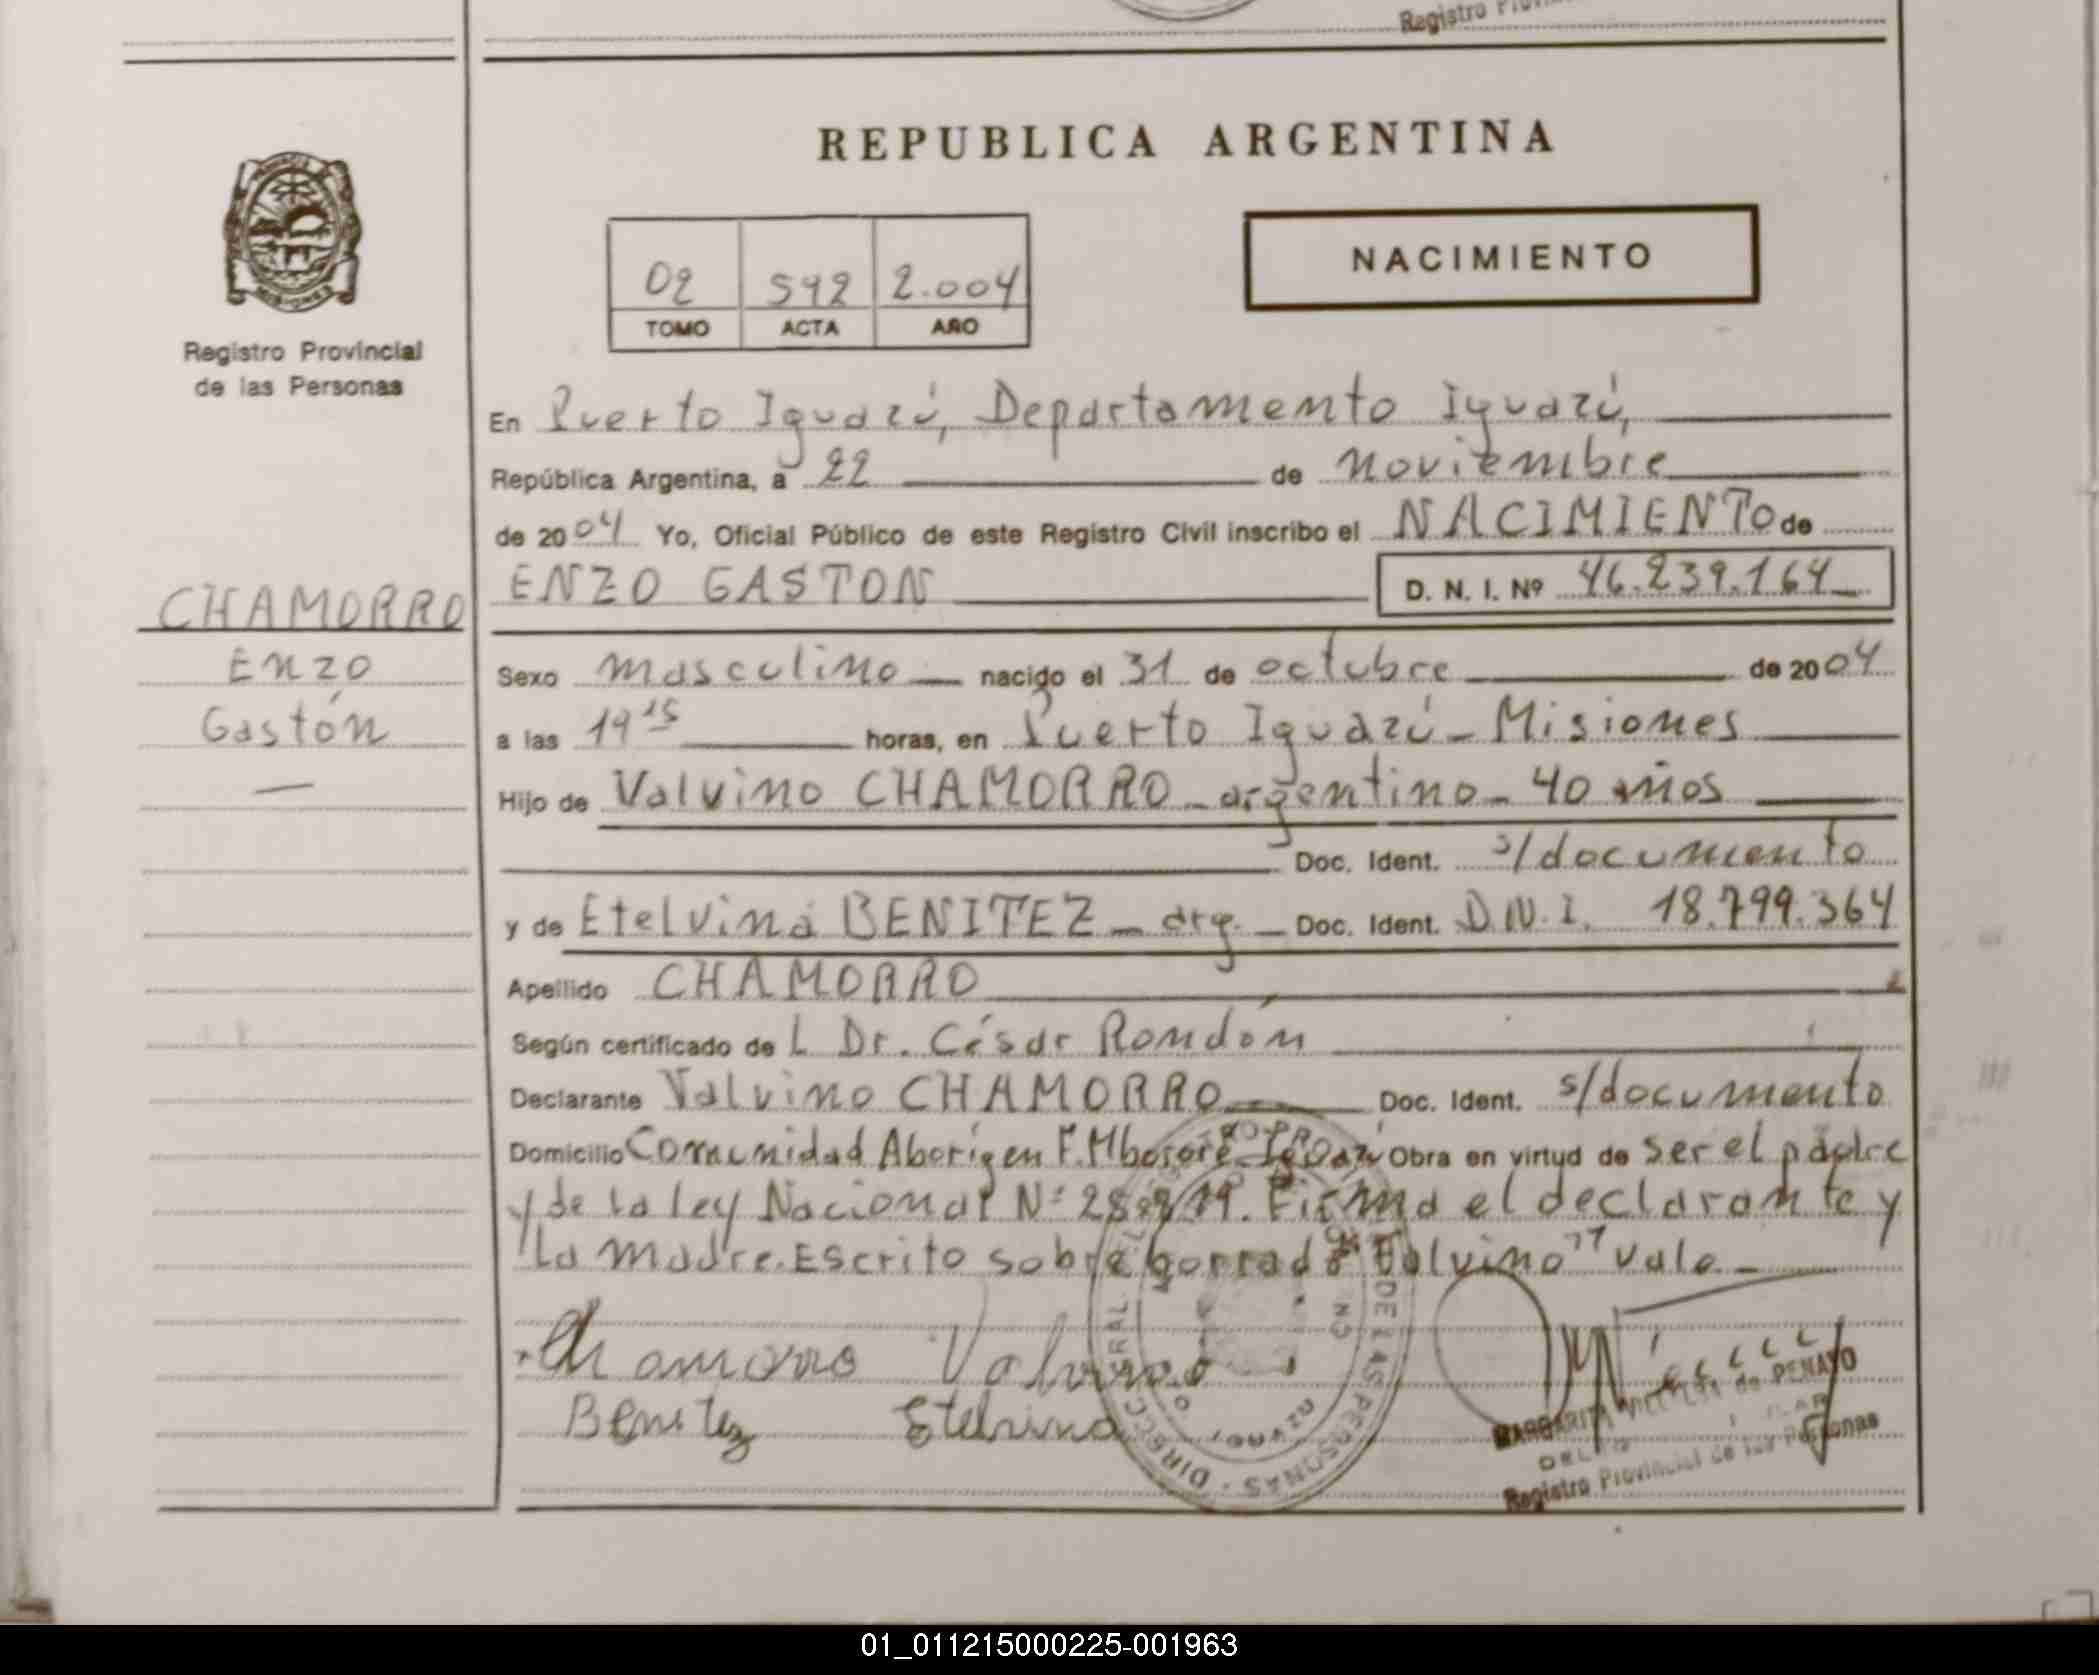 Registro
REPUBLICA ARGENTINA
NACIMIENTO
02 592 2.004
TOMO ACTA AÑO
MISIONES
Registro Provincial
de las Personas
En Puerto Iguazú, Departamento Iguazú,
República Argentina, a 22 de noviembre
de 2004 Yo, Oficial Público de este Registro Civil inscribo el NACIMIENTO de
CHAMORRO ENZO GASTON D. N. I. Nº 46.239.164
Enzo Sexo masculino nacido el 31 de octubre de 2004
Gastón a las 19 15 horas, en Puerto Iguazú - Misiones
Hijo de Valvino CHAMORRO - argentino - 40 años
Doc. Ident. s/documento
y de Etelvina BENITEZ - arg. - Doc. Ident. D.N.I. 18.799.364
Apellido CHAMORRO
Según certificado de L Dr. César Rondón
Declarante Valvino CHAMORRO Doc. Ident. s/documento
Domicilio Comunidad Aborigen F. Mbororé - Iguazú Obra en virtud de ser el padre
y de la ley Nacional Nº Firma el declarante y
la madre. Escrito sobre borrado "Valvino" Vale -
Chamorro Valvino
Benitez Etelvina
MARGARITA de PENAYO
Registro Provincial de las Personas
01_011215000225-001963